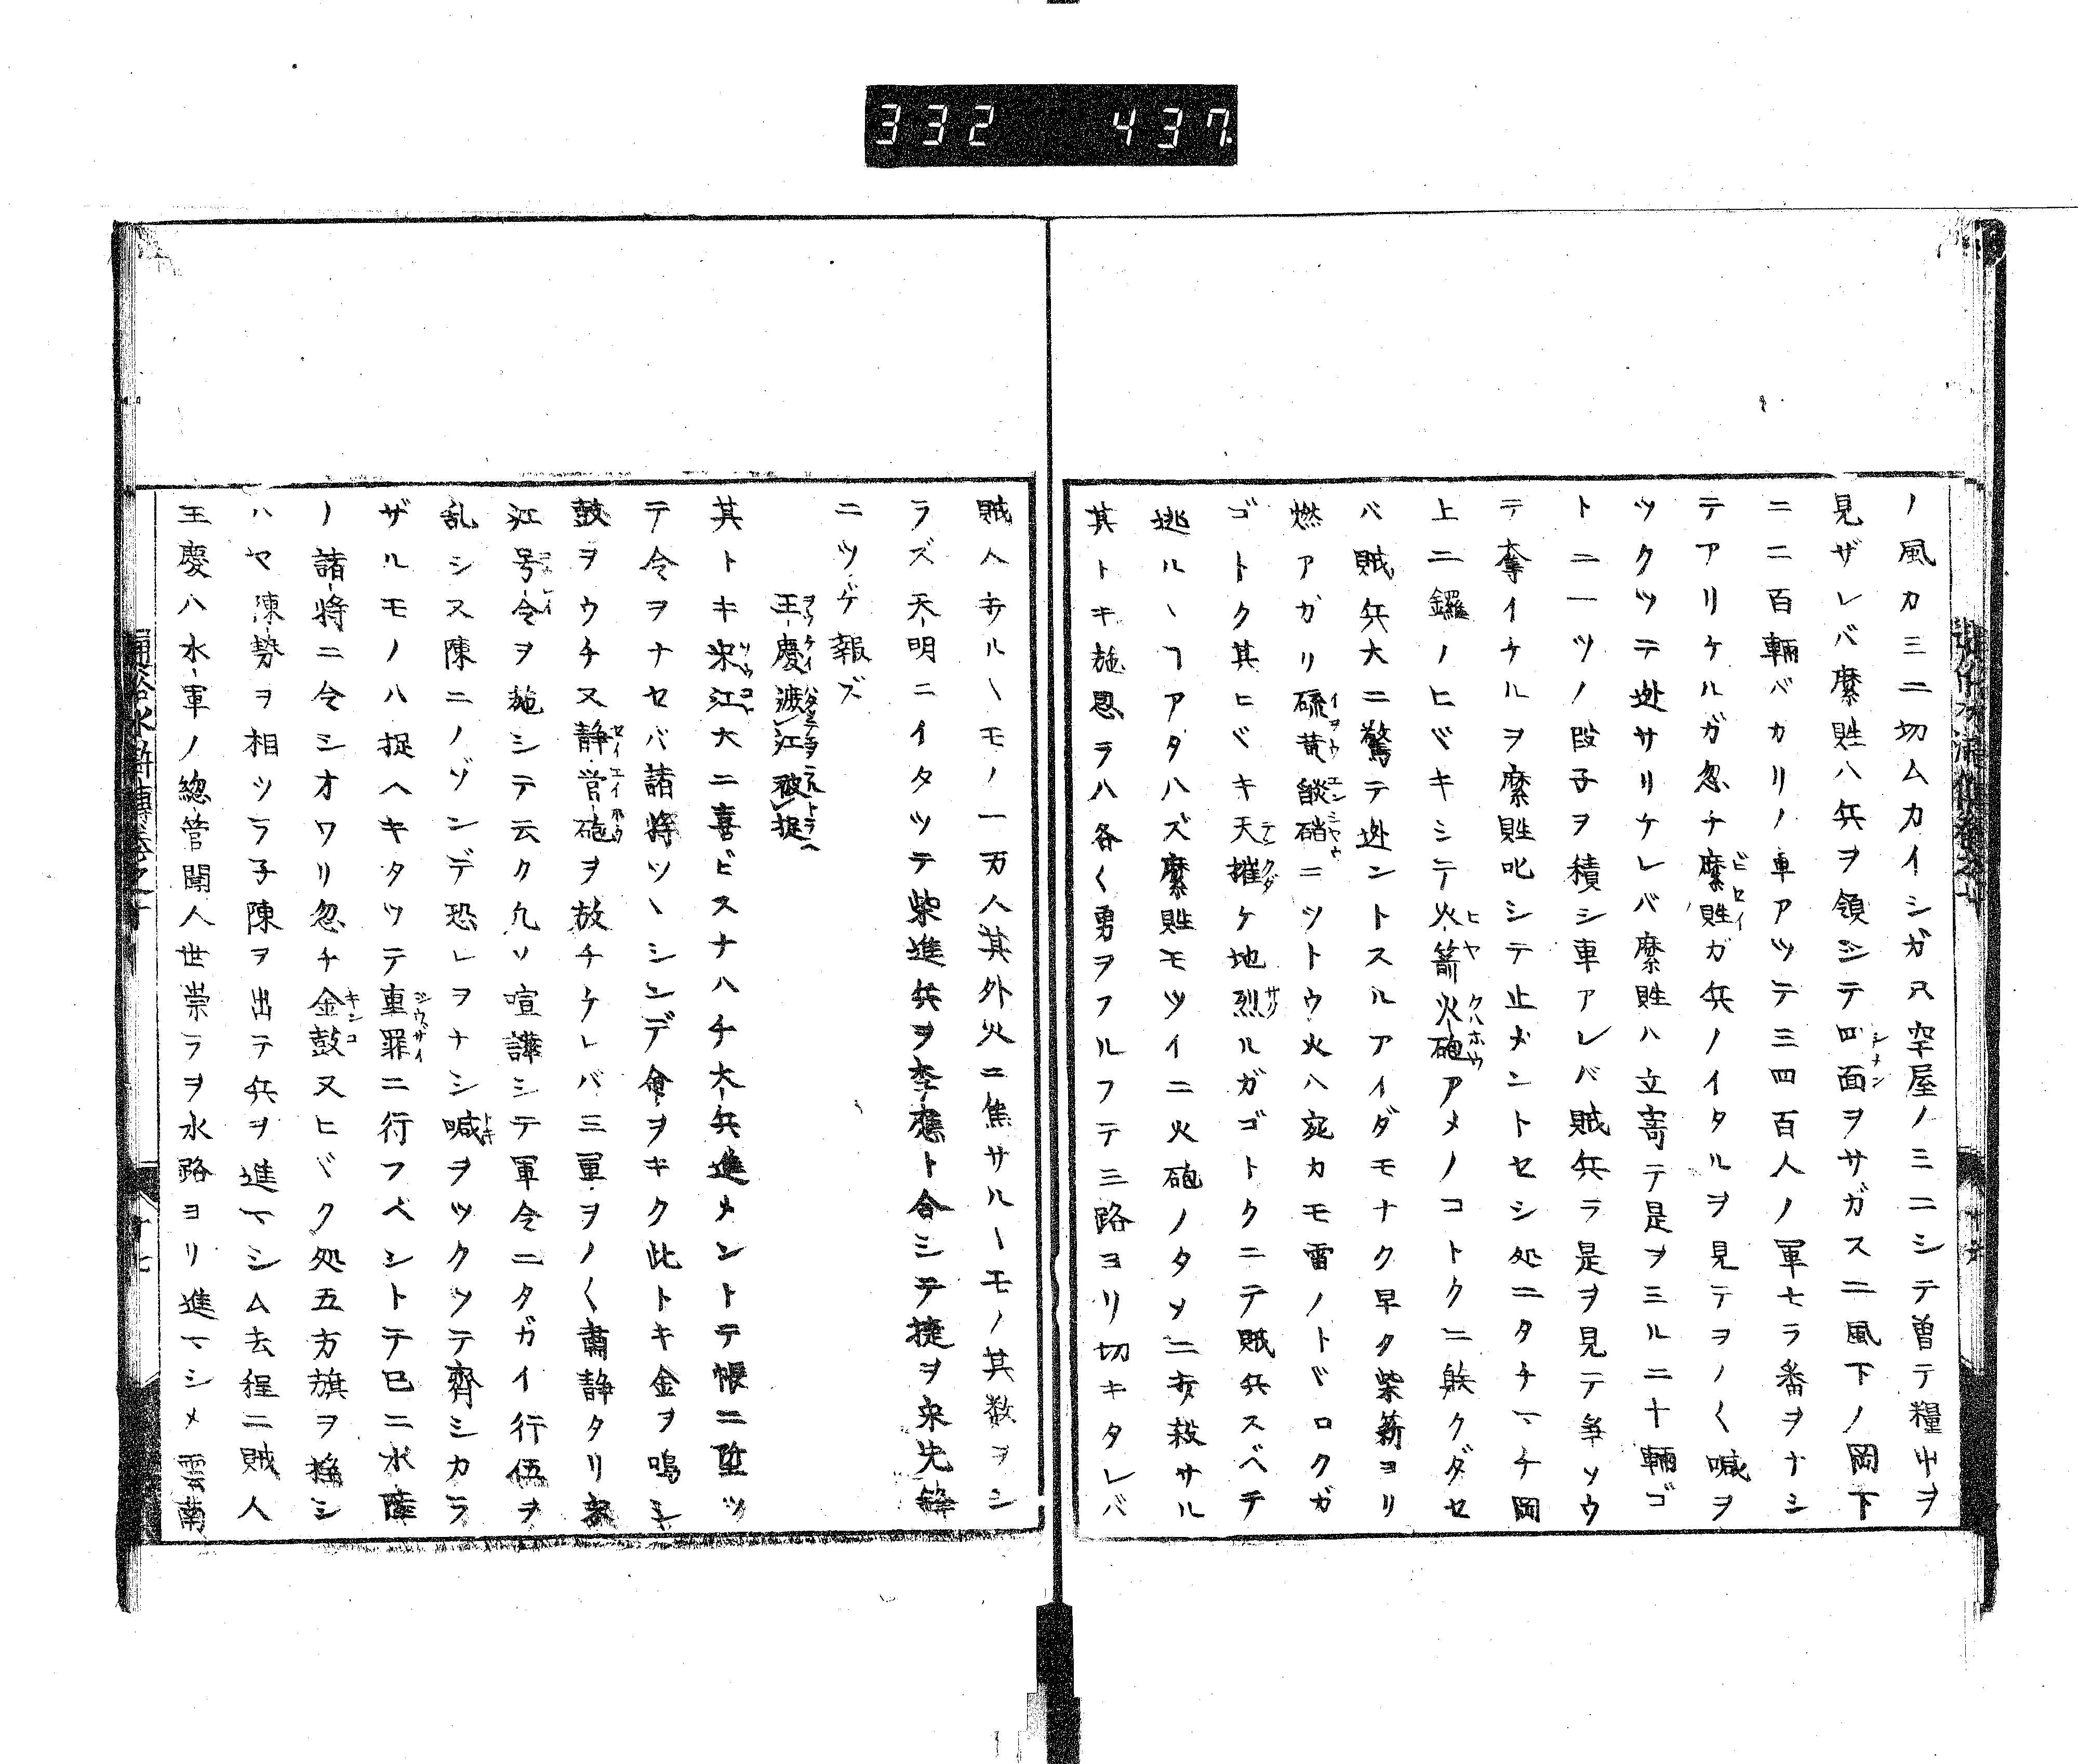 332 437
ノ風カ三ニ切ムカイシガ又空屋ノミニシテ曽テ糧屮ヲ
見ザレバ縻貹ハ兵ヲ領シテ四面ヲサガスニ風下ノ岡下
ニ二百輛バカリノ車アツテ三四百人ノ軍七ラ番ヲナシ
テアリケルガ忽チ縻貹ガ兵ノイタルヲ見テヲノ〱喊ヲ
ツクツテ迯サリケレバ縻貹ハ立寄テ是ヲミルニ十輛ゴ
トニ一ツノ段子ヲ積シ車アレバ賊兵ラ是ヲ見テ争ソウ
テ奪イケルヲ縻貹叱シテ止メントセシ処ニタチマチ岡
上ニ鑼ノヒヾキシテ火箭火砲アメノコトクニ躲クダセ
バ賊兵大ニ驚テ迯ントスルアイダモナク早ク柴薪ヨリ
燃アガリ硫黄䤢硝ニツトウ火ハ宛カモ雷ノトヾロクガ
ゴトク其ヒヾキ天摧ケ地烈ルガゴトクニテ賊兵スベテ
逃ルヽヿアタハズ縻貹モツイニ火砲ノタメニ妾殺サル
其トキ施恩ラハ各〱勇ヲフルフテ三路ヨリ切キタレバ
賊ハ妾ルヽモノ一万人其外火ニ焦サルヽモノ其数ヲシ
ラズ天明ニイタツテ柴進兵ヲ李應ト合シテ捷ヲ宋先鋒
ニツゲ報ズ
王慶渡江被捉
其トキ宋江大ニ喜ビスナハチ大兵進メントテ帳ニ陞ツ
テ令ヲナセバ諸將ツヽシンデ令ヲキク此トキ金ヲ鳴シ
鼓ヲウチ又静営砲ヲ放チケレバ三軍ヲノ〱肅静タリ宋
江号令ヲ施シテ云ク凡ソ喧譁シテ軍令ニタガイ行伍ヲ
乱シス陳ニノゾンデ恐レヲナシ喊ヲツクツテ齊シカラ
ザルモノハ捉ヘキタツテ重罪ニ行フベシトテ已ニ水陸
ノ諸將ニ令シオワリ忽チ金鼓又ヒヾク処五方旗ヲ揺シ
ハヤ陳勢ヲ相ツラ子陳ヲ出テ兵ヲ進マシム去程ニ賊人
王慶ハ水軍ノ總管聞人世崇ラヲ水路ヨリ進マシメ雲南
通俗水滸傳巻之十
十七